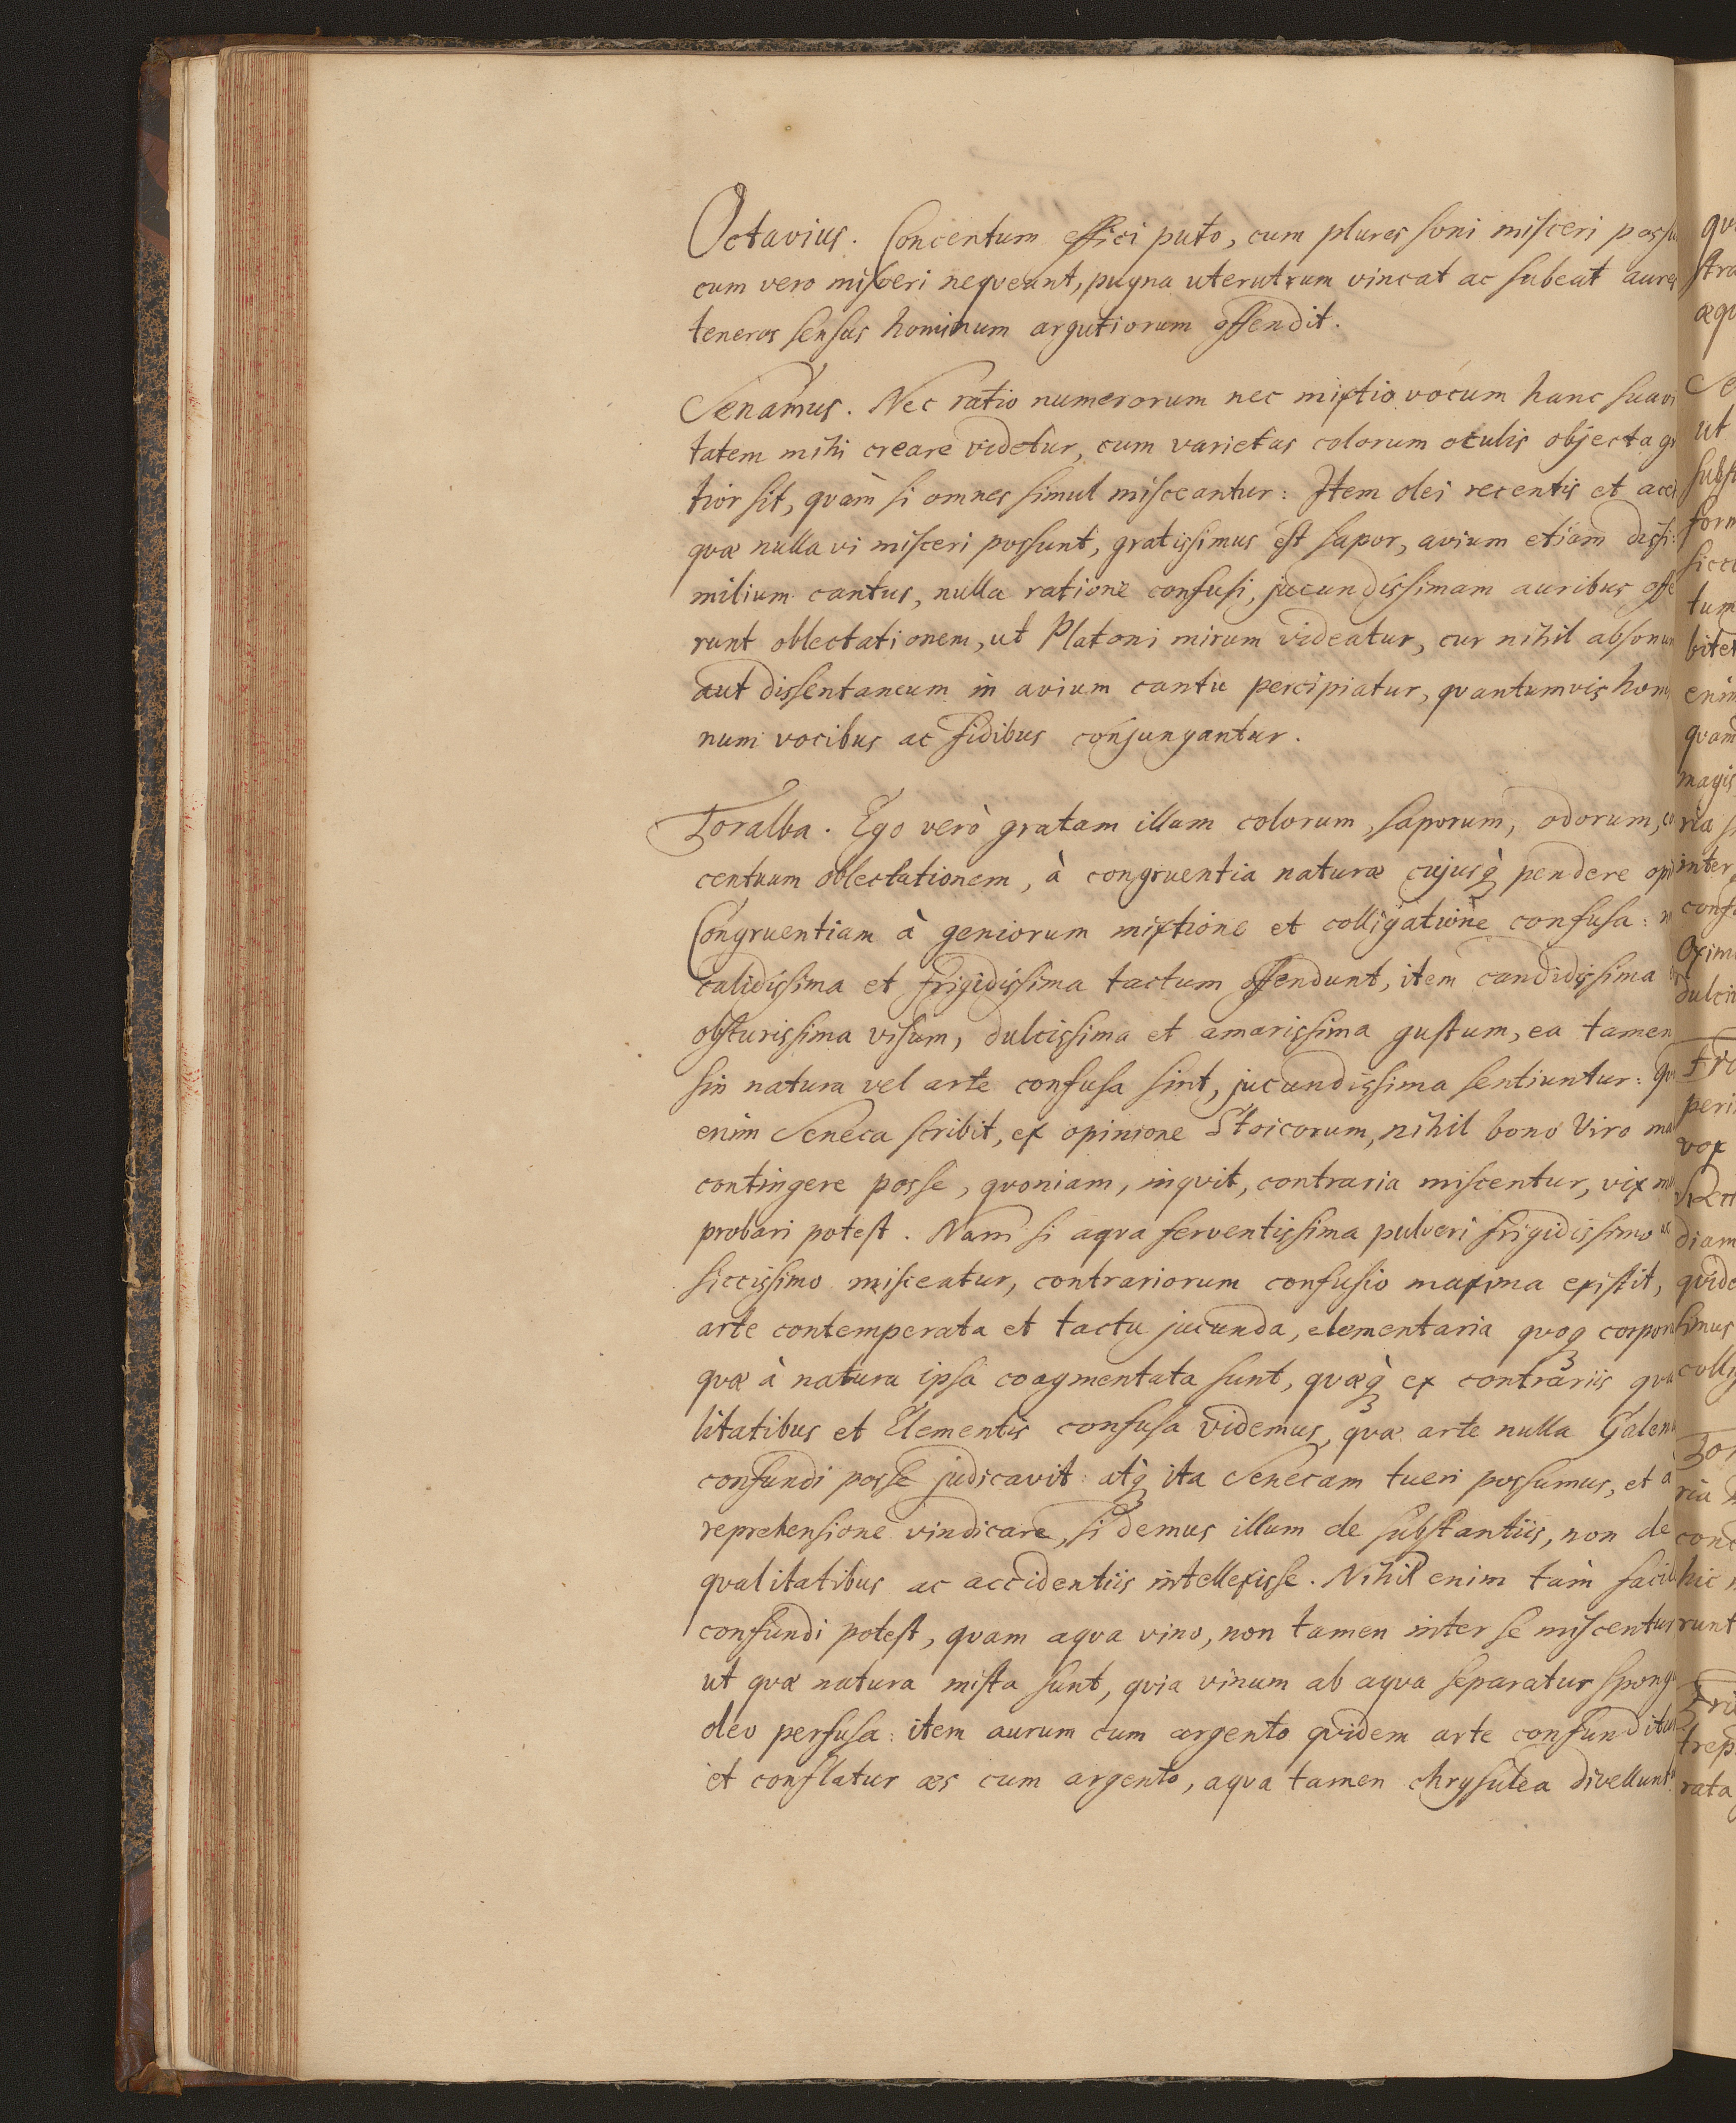 Octavius. Concentum effici puto, cum plures soni misceri possu
cum vero misceri neqveant, pugna uterutrum vincat ac subeat aures
teneros sensus hominum argutiorum offendit.
Senamus. Nec ratio numerorum nec mixtio vocum hanc suavi
tatem mihi creare videtur, cum varietas colorum oculis objecta gr
tior sit, qvàm si omnes simul misceantur: Item olei recentis et acet
qvæ nulla vi misceri possunt, gratissimus est sapor, avium etiam dissi:
milium cantus, nulla ratione confusi, jucundissimam auribus offe
runt oblectationem, ut Platoni mirum videatur, cur nihil absonum
aut dissentaneum in avium cantu percipiatur, qvantumvis homi
num vocibus ac fidibus conjungantur.
Toralba. Ego verò gratam illam colorum, saporum, odorum, co
centuum oblectationem, à congruentia naturæ cujusq̀ pendere opi
Congruentiam à geniorum mixtione et colligatione confusa: n
calidissima et frigidissima tactum offendunt, item candidissima
obscurissima visum, dulcissima et amarissima gustum, ea tamen
sin natura vel arte confusa sint, jucundissima sentiuntur: qv
enim Seneca scribit, ex opinione Stoicorum, nihil bono Viro ma
contingere posse, qvoniam, inqvit, contraria miscentur, vix mi
probari potest. Nam si aqva ferventissima pulveri frigidissimo ac
siccissimo misceatur, contrariorum confusio maxima existit,
arte contemperata et tactu jucunda, elementaria qvoq corpora
qvæ à natura ipsa coagmentata sunt, qvæq̀ ex contrariis qva
litatibus et Elementis confusa videmus, qvæ arte nulla Galenu
confundi posse judicavit: atq̀ ita Senecam tueri possumus, et à
reprehensione vindicare, si demus illum de substantiis, non de
qvalitatibus ac accidentiis intellexisse. Nihil enim tàm facil
confundi potest, qvam aqva vino, non tamen inter se miscentur
ut qvæ natura mista sunt, qvia vinum ab aqva separatur spong
oleo perfusa: item aurum cum argento qvidem arte confunditur
et conflatur æs cum argento, aqva tamen chrysulea divellunt